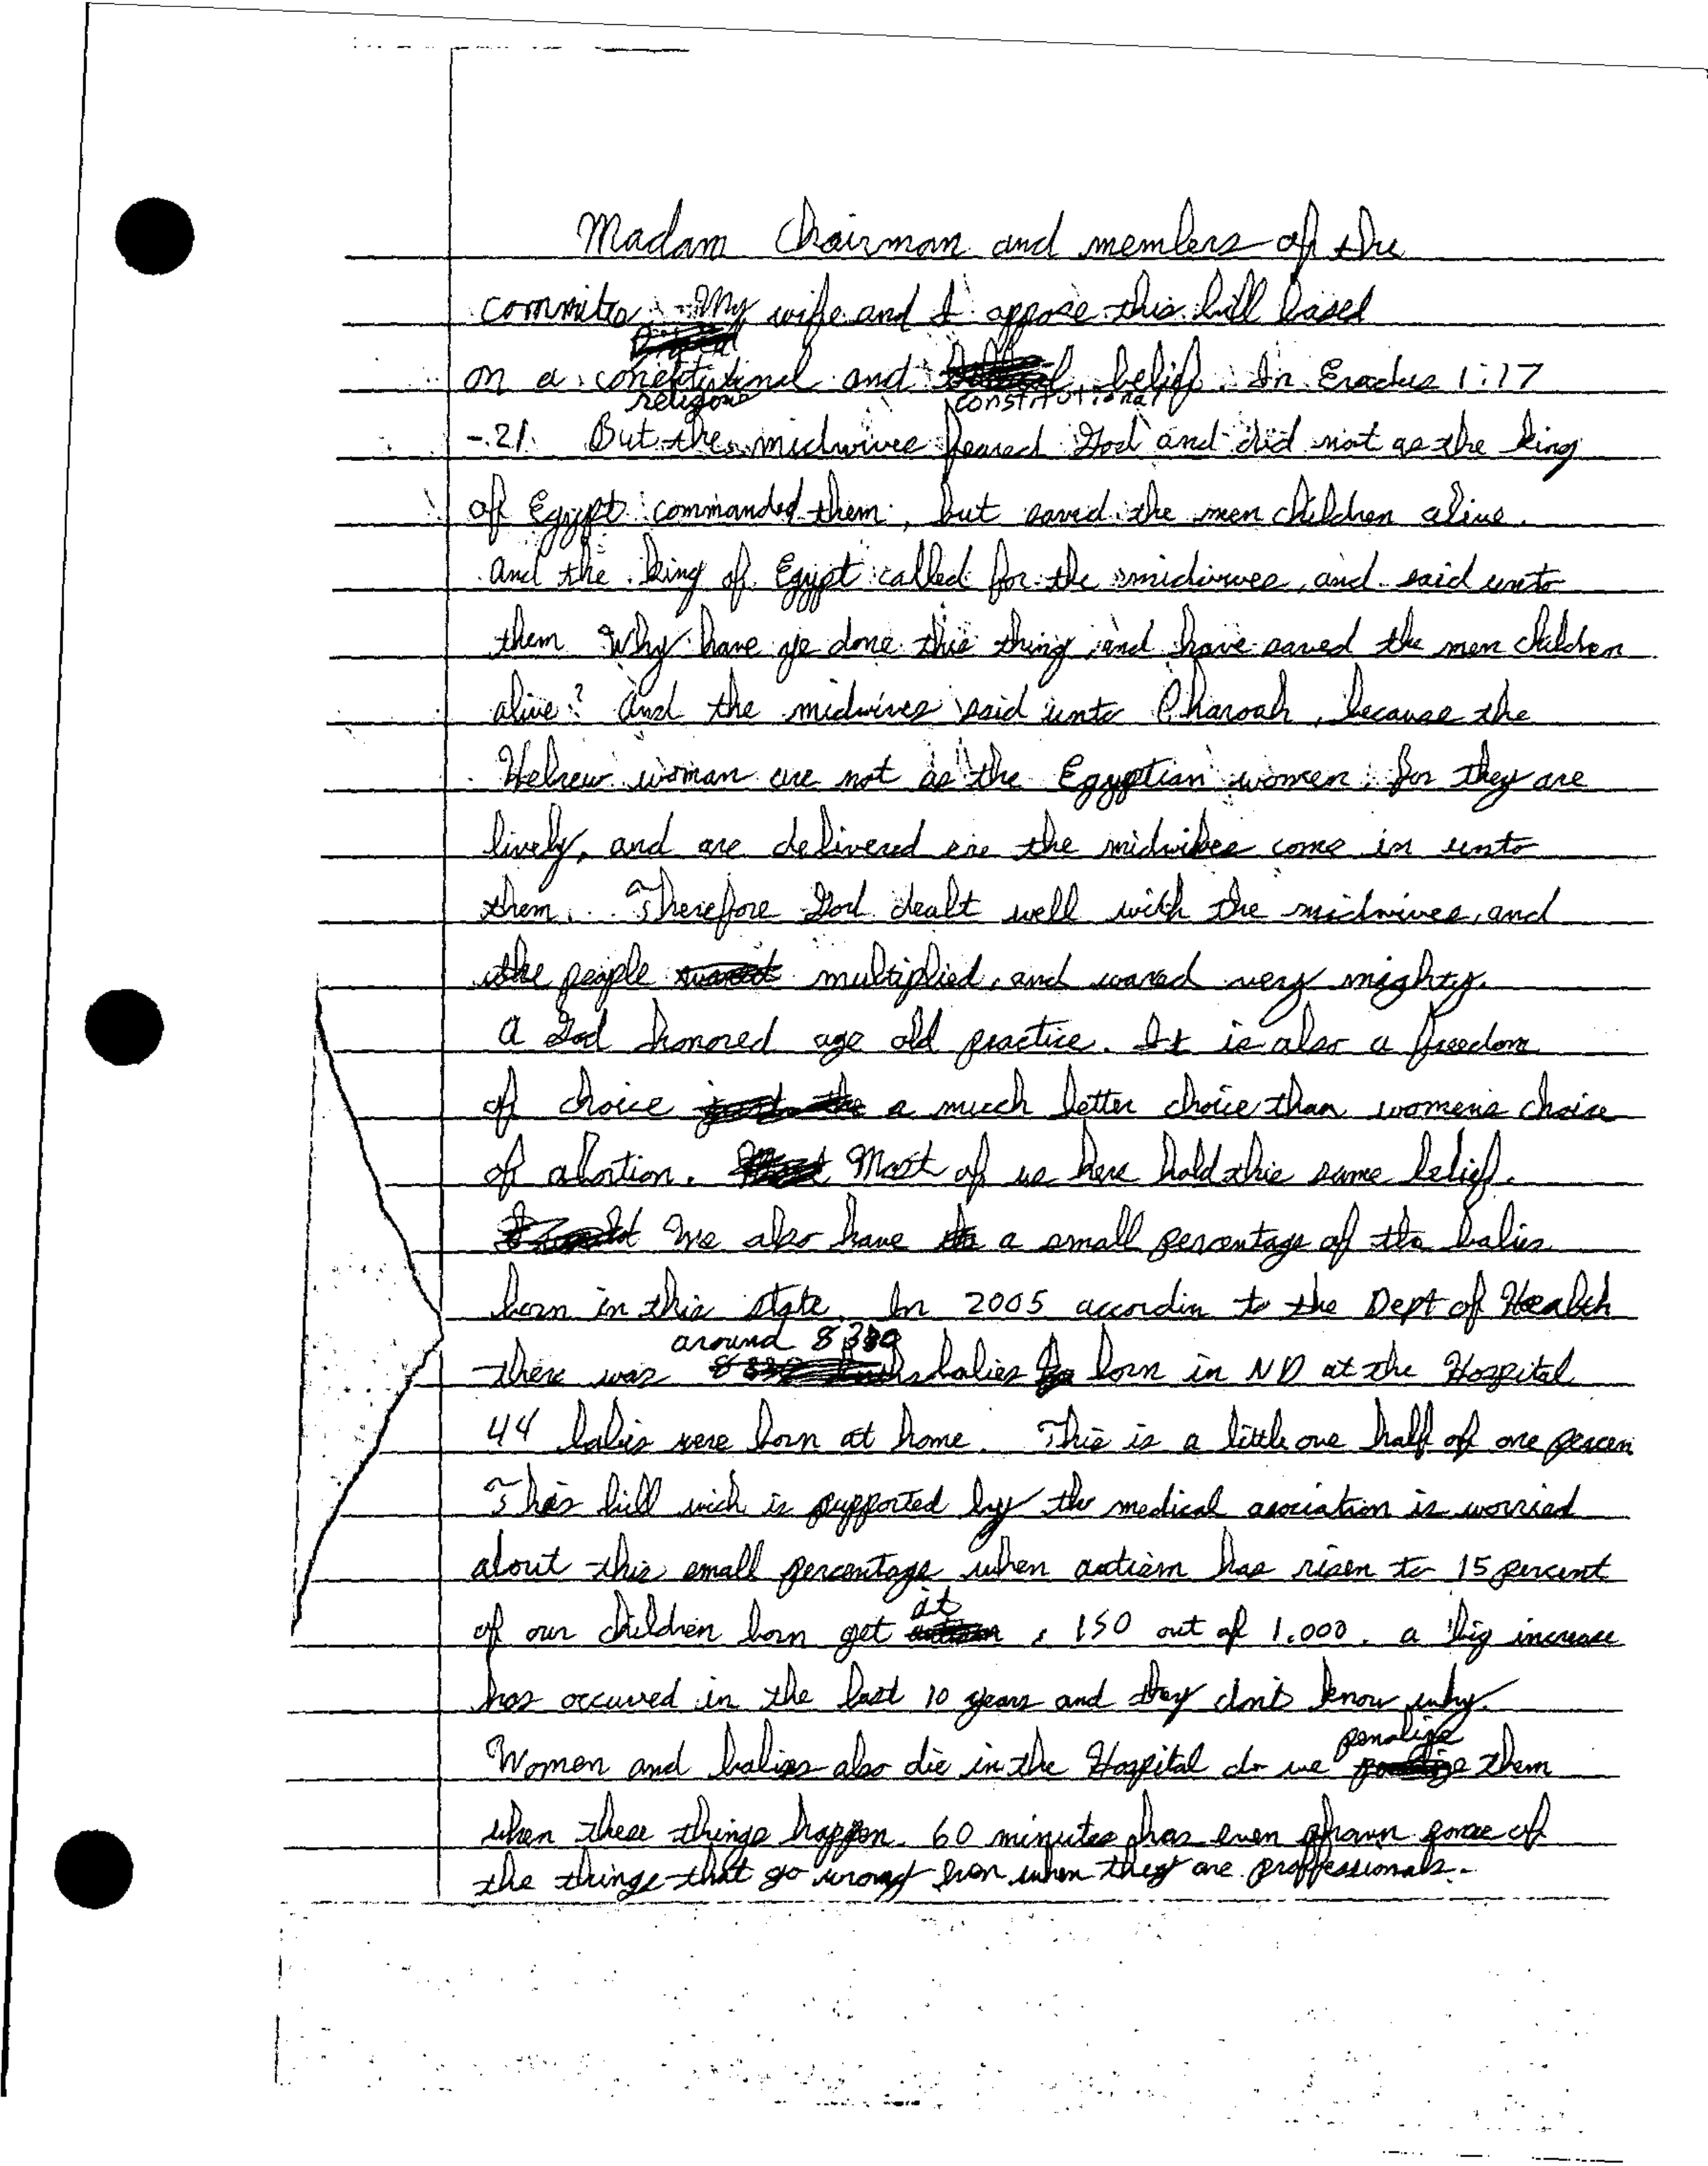 Madam Chairman and members of the
committe. My wife and I oppose this bill based
on a constitutional and belief. In Exodus 1:17
religous constitutional
-21. But the midwives feared God and did not as the king
of Egypt commanded them, but saved the men children alive.
And the king of Egypt called for the midwives, and said unto
them Why have ye done this thing, and have saved the men children
alive? And the midwives said unto Pharoah, because the
Hebrew woman are not as the Egyptian women: for they are
lively, and are delivered ere the midwibes come in unto
them. Therefore God dealt well with the midwives, and
the people multiplied, and waxed very mighty.
A God honored age old practice. It is also a freedom
of choice a much better choice than womens choice
of abortion. Most of us here hold this same belief.
We also have a small percentage of the babies
born in this state. In 2005 accordin to the Dept of Health
around 8380
there was babies born in ND at the Hospital
44 babies were born at home. This is a little one half of one percen
This bill wich is supported by the medical asociation is worried
about this small percentage when autism has risen to 15 percent
it
of our children born get , 150 out of 1.000. a big increase
has occured in the last 10 years and they don't know why.
penalize
Women and babies also die in the Hospital do we them
when these things happen. 60 minutes has even shown some of
the things that go wrong even when they are proffessionals.